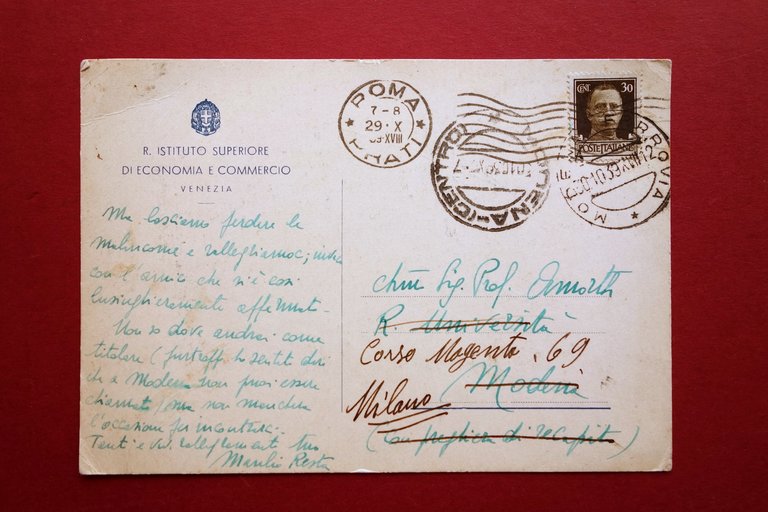 R. ISTITUTO SUPERIORE
DI ECONOMIA E COMMERCIO
VENEZIA
Ma lasciamo perdere le
malinconie e rallegriamoci invece
con l'amico che si è così
lusinghieramente affermato.
Non so dove andrai come
titolare (purtroppo ho sentito dire
che a Modena non puoi essere
chiamato) ma non mancherà
l'occasione per incontrarci.
Tanti e vivi rallegramenti tuo
Manlio Resta
ROMA
7-8
29·X
39·XVIII
PRATI
MODENA-(CENTRO)
CENT. 30
POSTE ITALIANE
MODENA FERROVIA
30.10.39.XVIII 12
Chm Sig. Prof. Amorth
R. Università
Corso Magenta, 69
Modena
Milano
(con preghiera di recapito)